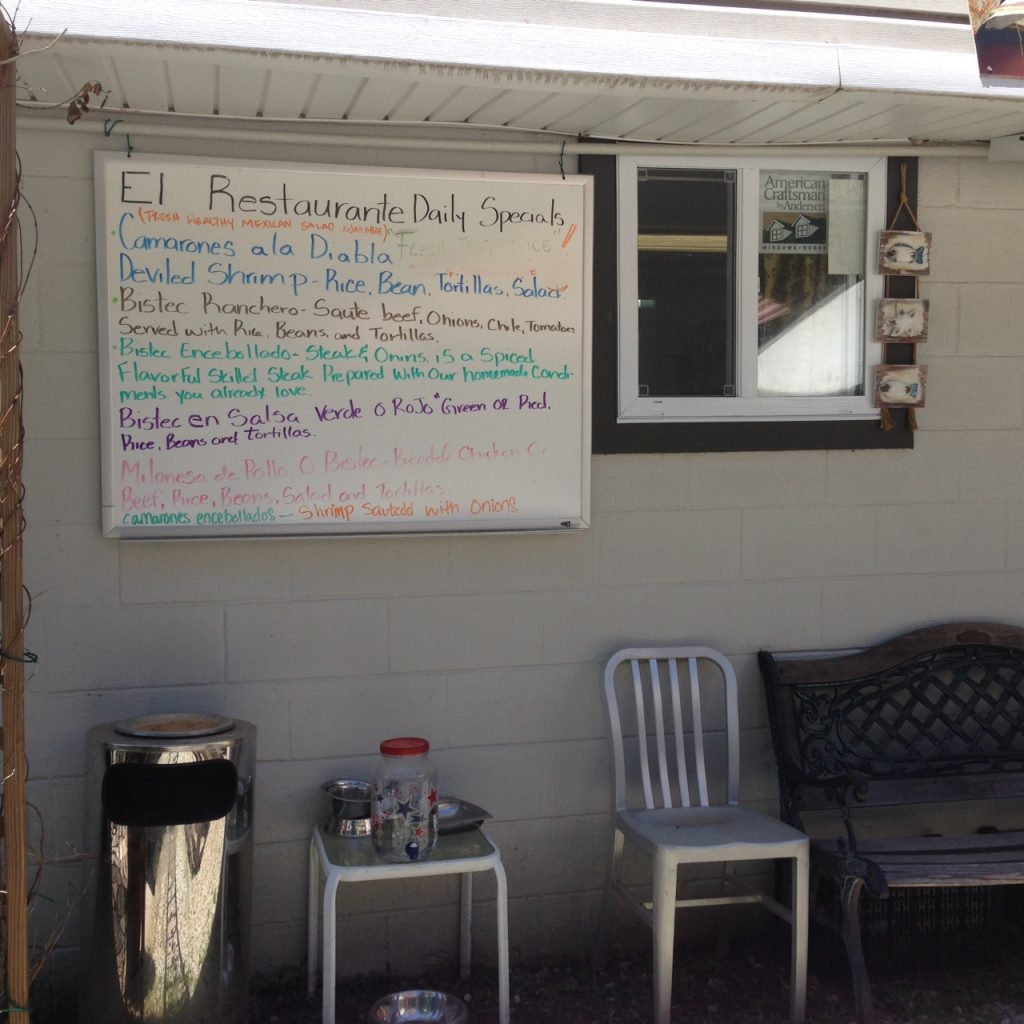 El Restaurante Daily Specials
(FRESH HEALTHY MEXICAN SALAD AVAILABLE)
Camarones ala Diabla FRESH
Deviled Shrimp - Rice, Bean, Tortillas, Salad.
Bistec Ranchero - Saute beef, Onions, Chile, Tomatoes
Served with Rice, Beans, and Tortillas.
Bistec Encebollado - Steak & Onins, is a Spiced
Flavorful Skilled Steak Prepared With Our homemade Condi-
ments you already love.
Bistec en Salsa Verde O RoJo "Green OR Red.
Rice, Beans and Tortillas.
Milanesa de Pollo O Bistec - Breaded Chicken
Beef, Rice, Beans, Salad and Tortillas
camarones encebollados - Shrimp Sautedd with Onions
American
Craftsman
by Andersen
WINDOWS • DOORS